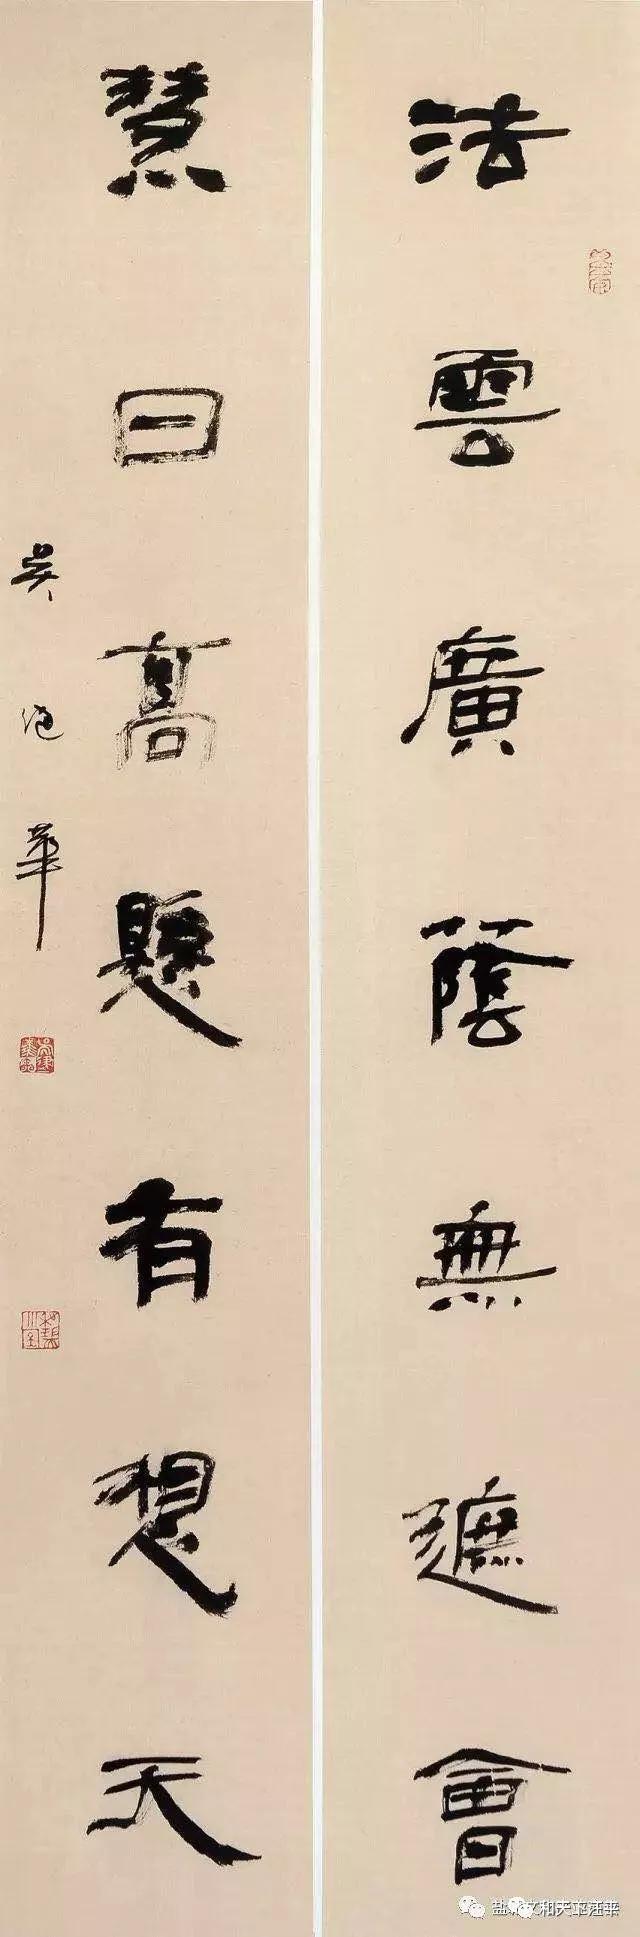 法雲廣蔭無遮會
慧日高懸有想天